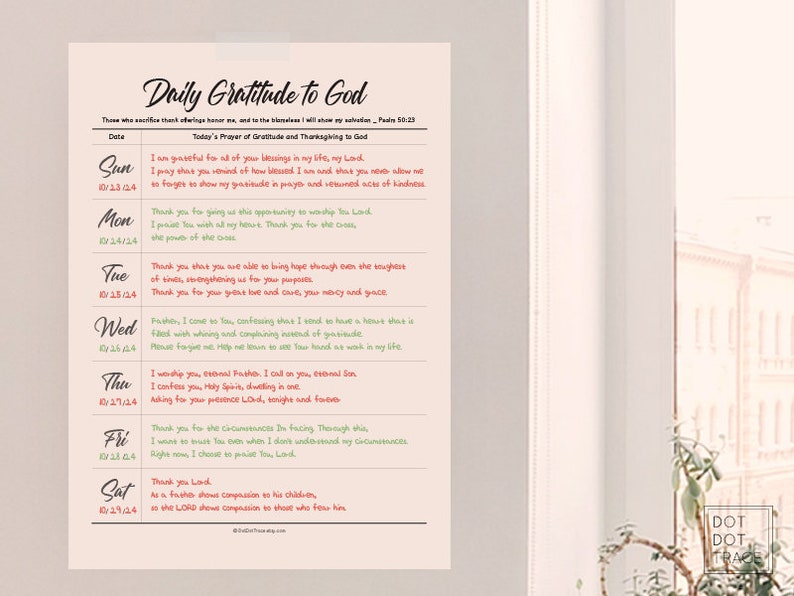 Daily Gratitude to God
Those who sacrifice thank offerings honor me, and to the blameless I will show my salvation _ Psalm 50:23
Date Today's Prayer of Gratitude and Thanksgiving to God
Sun
10/23/24
I am grateful for all of your blessings in my life, my Lord.
I pray that you remind of how blessed I am and that you never allow me
to forget to show my gratitude in prayer and returned acts of kindness.
Mon
10/24/24
Thank you for giving us this opportunity to worship You Lord.
I praise You with all my heart. Thank you for the cross,
the power of the cross.
Tue
10/25/24
Thank you that you are able to bring hope through even the toughest
of times, strengthening us for your purposes.
Thank you for your great love and care, your mercy and grace.
Wed
10/26/24
Father, I come to You, confessing that I tend to have a heart that is
filled with whining and complaining instead of gratitude.
Please forgive me. Help me learn to see Your hand at work in my life.
Thu
10/27/24
I worship you, eternal Father. I call on you, eternal Son.
I confess you, Holy Spirit, dwelling in one.
Asking for your presence LOrd, tonight and forever
Fri
10/28/24
Thank you for the circumstances I'm facing. Thorough this,
I want to trust You even when I don't understand my circumstances.
Right now, I choose to praise You, Lord.
Sat
10/29/24
Thank you Lord.
As a father shows compassion to his children,
so the LORD shows compassion to those who fear him.
©DotDotTrace.etsy.com
DOT
DOT
TRACE